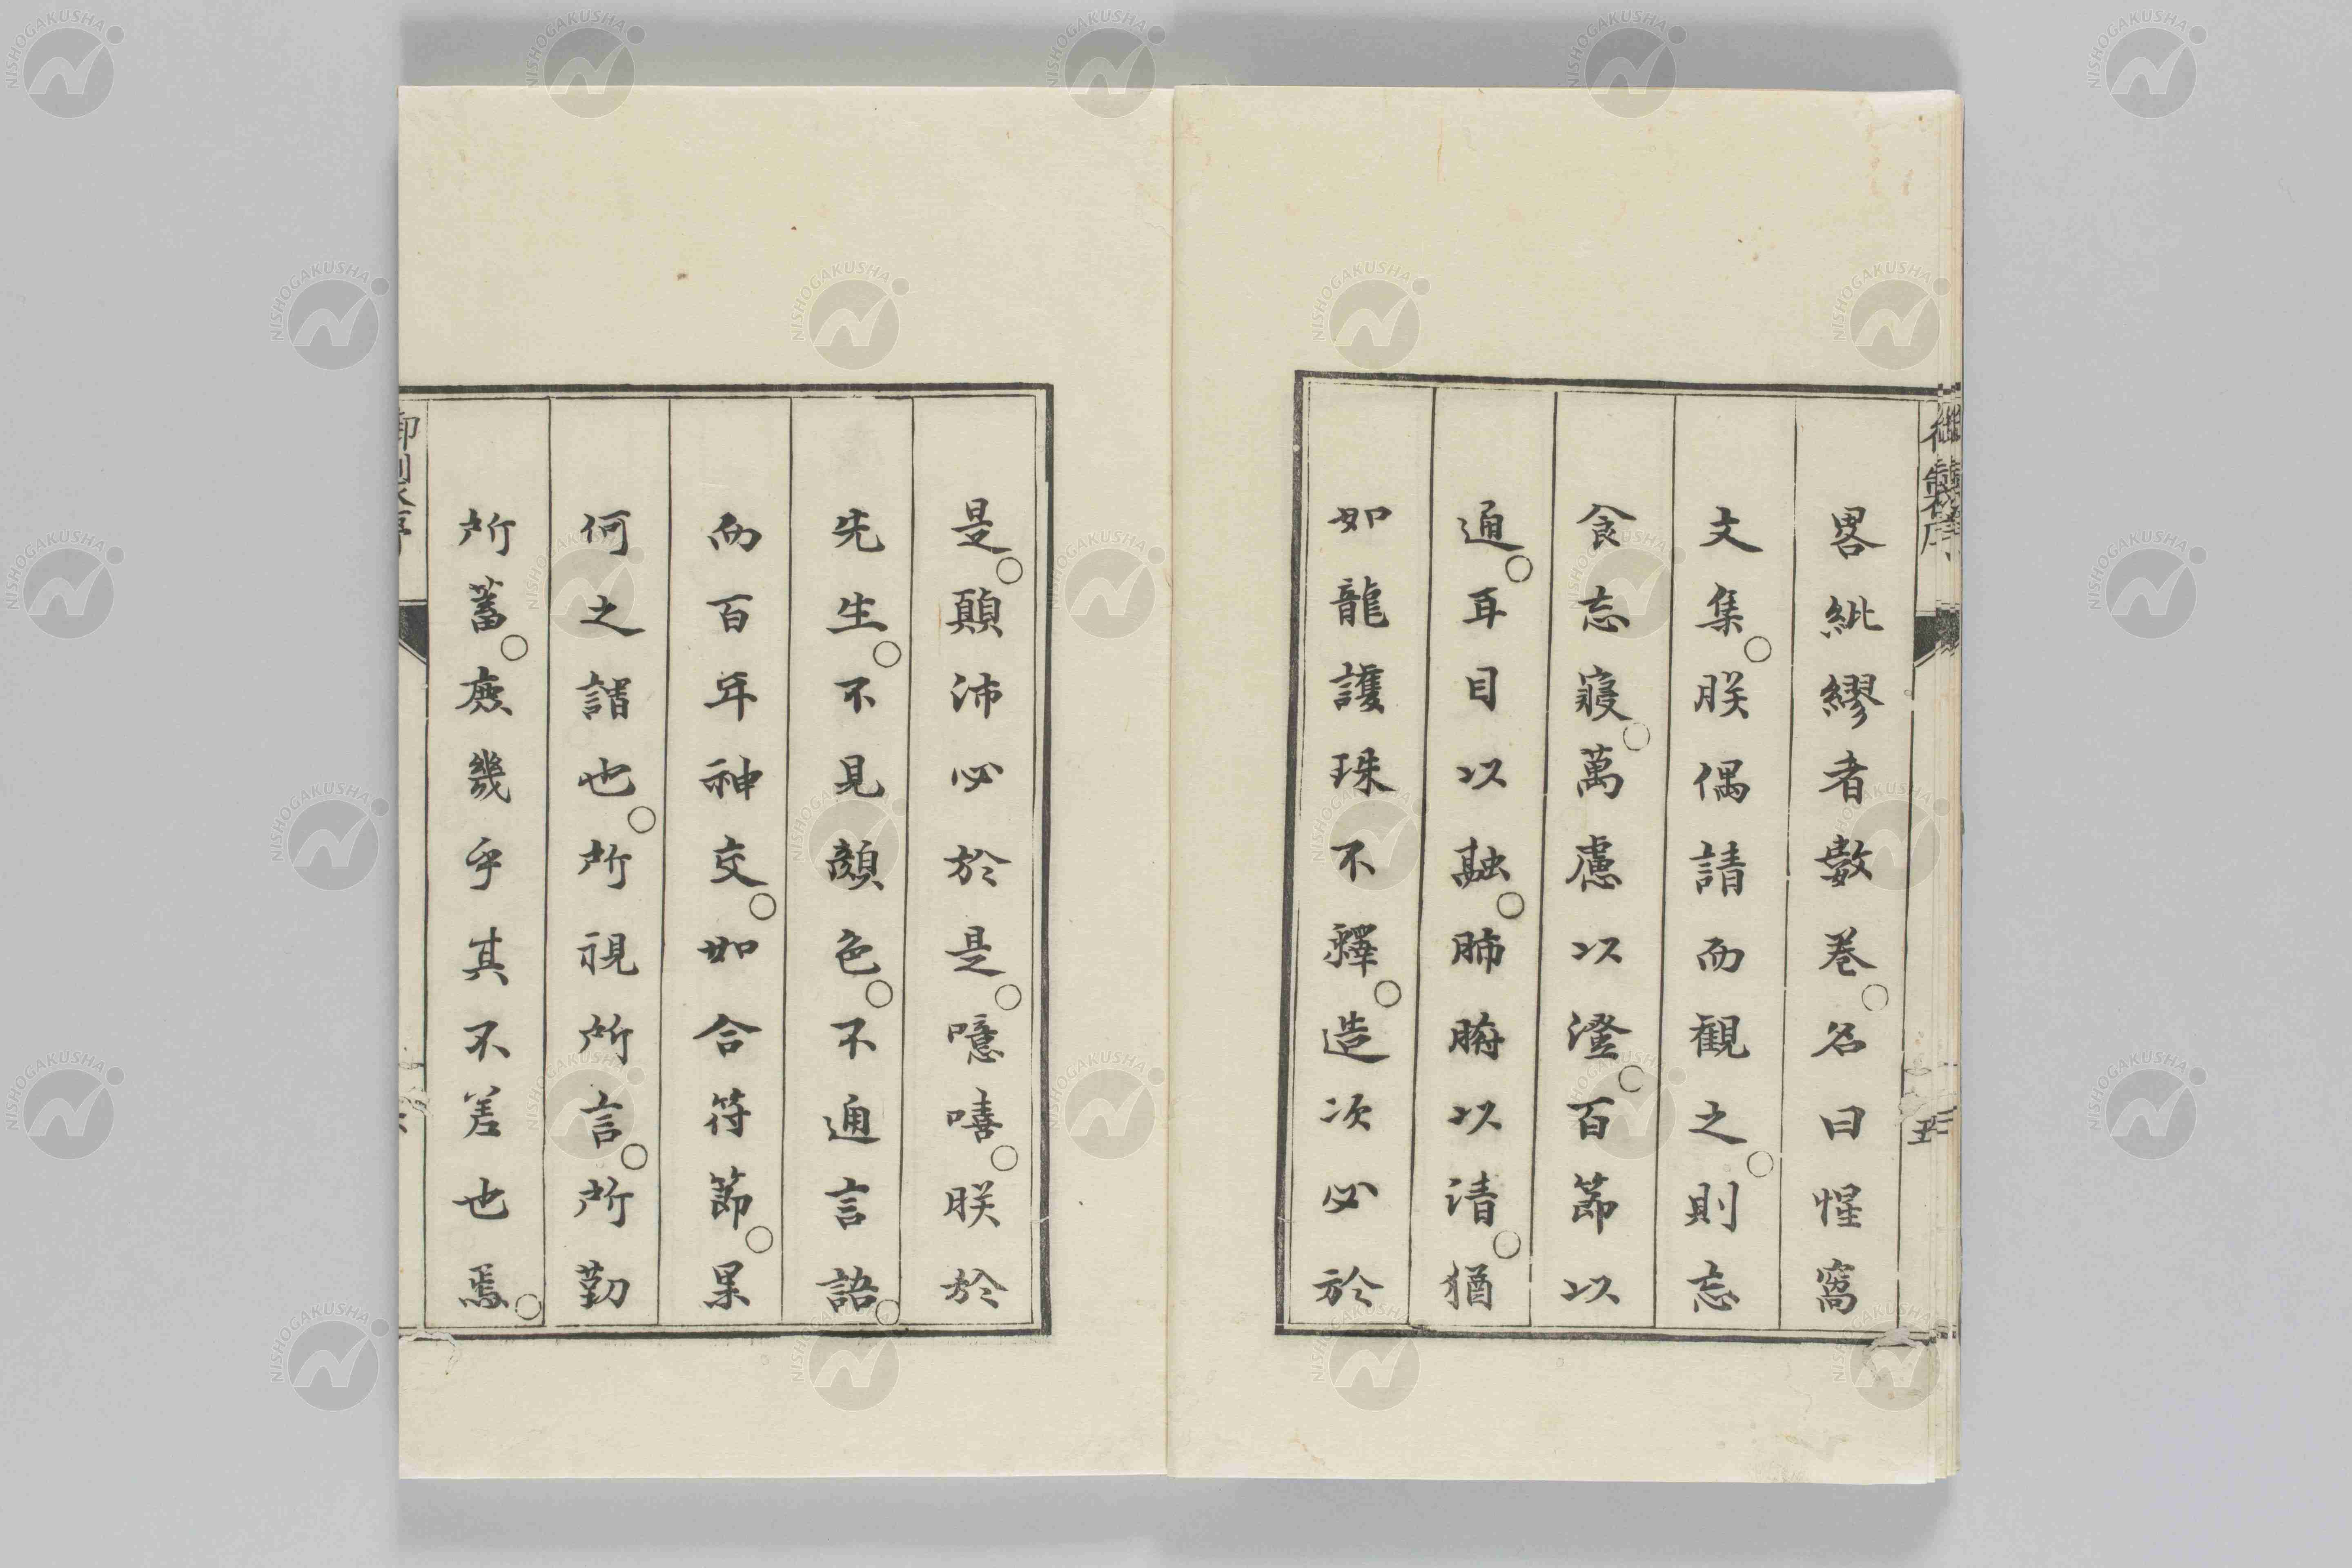 畧紕繆者數卷○名曰惺窩
文集○朕偶請而觀之○則忘
食忘寢○萬慮以澄○百節以
通○耳目以融○肺腑以清○猶
如龍護珠不釋○造次必於
是○顛沛必於是○噫嘻○朕於
先生○不見顏色○不通言語○
而百年神交○如合符節○果
何之諳也○所視所言○所勤
所蓄○庶幾乎其不差也焉○
御製序
五
NISHOGAKUSHA